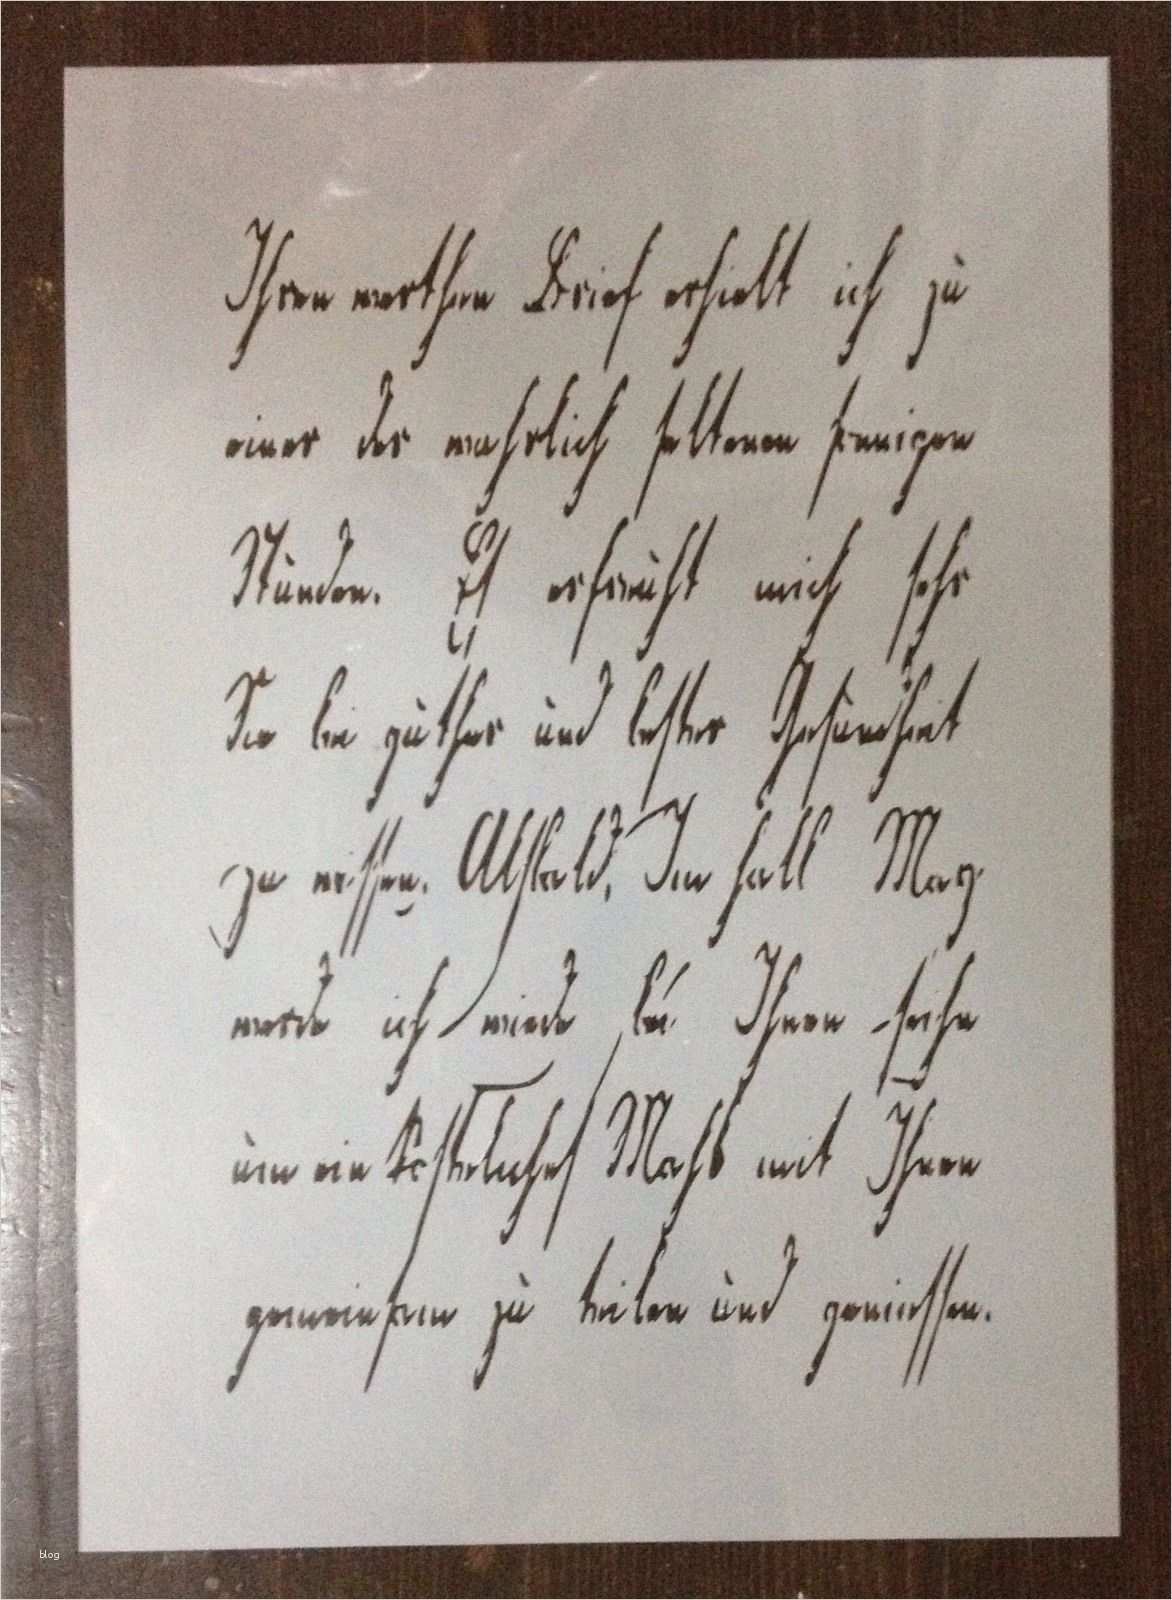 Ihren werthen Brief erhielt ich zu
einer der wahrlich seltenen sonnigen
Stunden. Es erfreuht mich sehr
Sie bei guther und bester Gesundheit
zu wissen. Alsbald, Im hall May
werde ich wiede bei Ihnen seihn
um ein Köstelichs Mahl mit Ihnen
gemeinsam zu teilen und geniessen.
blog